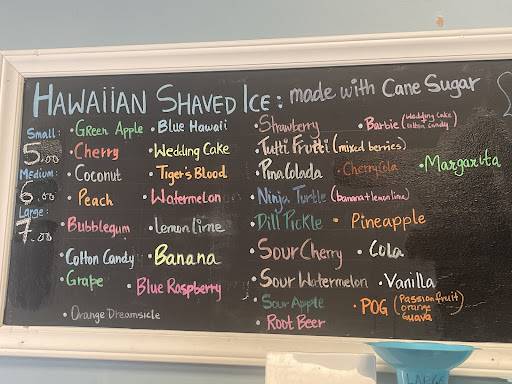 HAWAIIAN SHAVED ICE: made with Cane Sugar
Small:
5.00
Medium:
6.00
Large:
7.00
• Green Apple
• Cherry
• Coconut
• Peach
• Bubblegum
Cotton Candy
• Grape
• Orange Dreamsicle
• Blue Hawaii
• Wedding Cake
• Tiger's Blood
• Watermelon
• Lemon lime
• Banana
• Blue Raspberry
• Strawberry
• Tutti Frutti (mixed berries)
• Pina Colada
• Ninja Turtle (banana + lemon lime)
• Dill Pickle
• Sour Cherry
• Sour Watermelon
• Sour Apple
• Root Beer
• Barbie (Wedding Cake
Cotton Candy)
• Cherry Cola
• Pineapple
• Cola
• Vanilla
• POG (Passion fruit
orange
Guava)
• Margarita
LARGE